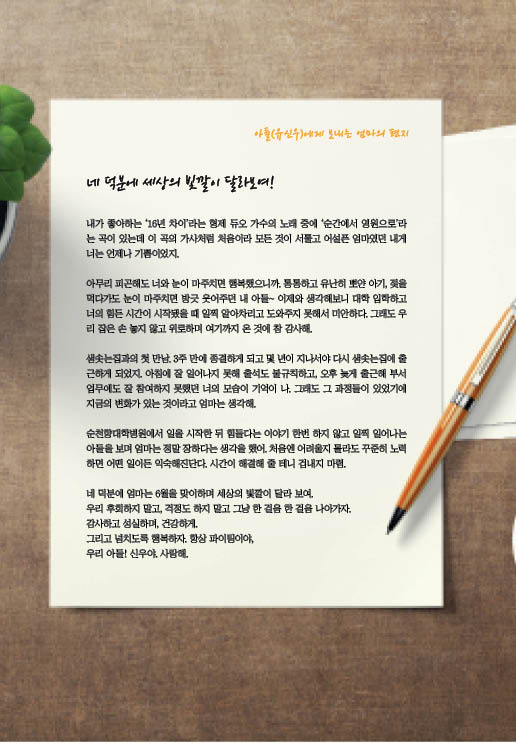 아들(유신우)에게 보내는 엄마의 편지
네 덕분에 세상의 빛깔이 달라보여!
내가 좋아하는 '16년 차이'라는 형제 듀오 가수의 노래 중에 '순간에서 영원으로'라
는 곡이 있는데 이 곡의 가사처럼 처음이라 모든 것이 서툴고 어설픈 엄마였던 내게
너는 언제나 기쁨이었지.
아무리 피곤해도 너와 눈이 마주치면 행복했으니까. 통통하고 유난히 뽀얀 아기, 젖을
먹다가도 눈이 마주치면 방긋 웃어주던 내 아들~ 이제와 생각해보니 대학 입학하고
너의 힘든 시간이 시작됐을 때 일찍 알아차리고 도와주지 못해서 미안하다. 그래도 우
리 잡은 손 놓지 않고 위로하며 여기까지 온 것에 참 감사해.
샘솟는집과의 첫 만남. 3주 만에 종결하게 되고 몇 년이 지나서야 다시 샘솟는집에 출
근하게 되었지. 아침에 잘 일어나지 못해 출석도 불규칙하고, 오후 늦게 출근해 부서
업무에도 잘 참여하지 못했던 너의 모습이 기억이 나. 그래도 그 과정들이 있었기에
지금의 변화가 있는 것이라고 엄마는 생각해.
순천향대학병원에서 일을 시작한 뒤 힘들다는 이야기 한번 하지 않고 일찍 일어나는
아들을 보며 엄마는 정말 장하다는 생각을 했어. 처음엔 어려울지 몰라도 꾸준히 노력
하면 어떤 일이든 익숙해진단다. 시간이 해결해 줄 테니 겁내지 마렴.
네 덕분에 엄마는 6월을 맞이하며 세상의 빛깔이 달라 보여.
우리 후회하지 말고, 걱정도 하지 말고 그냥 한 걸음 한 걸음 나아가자.
감사하고 성실하며, 건강하게.
그리고 넘치도록 행복하자. 항상 파이팅이야,
우리 아들! 신우야. 사랑해.